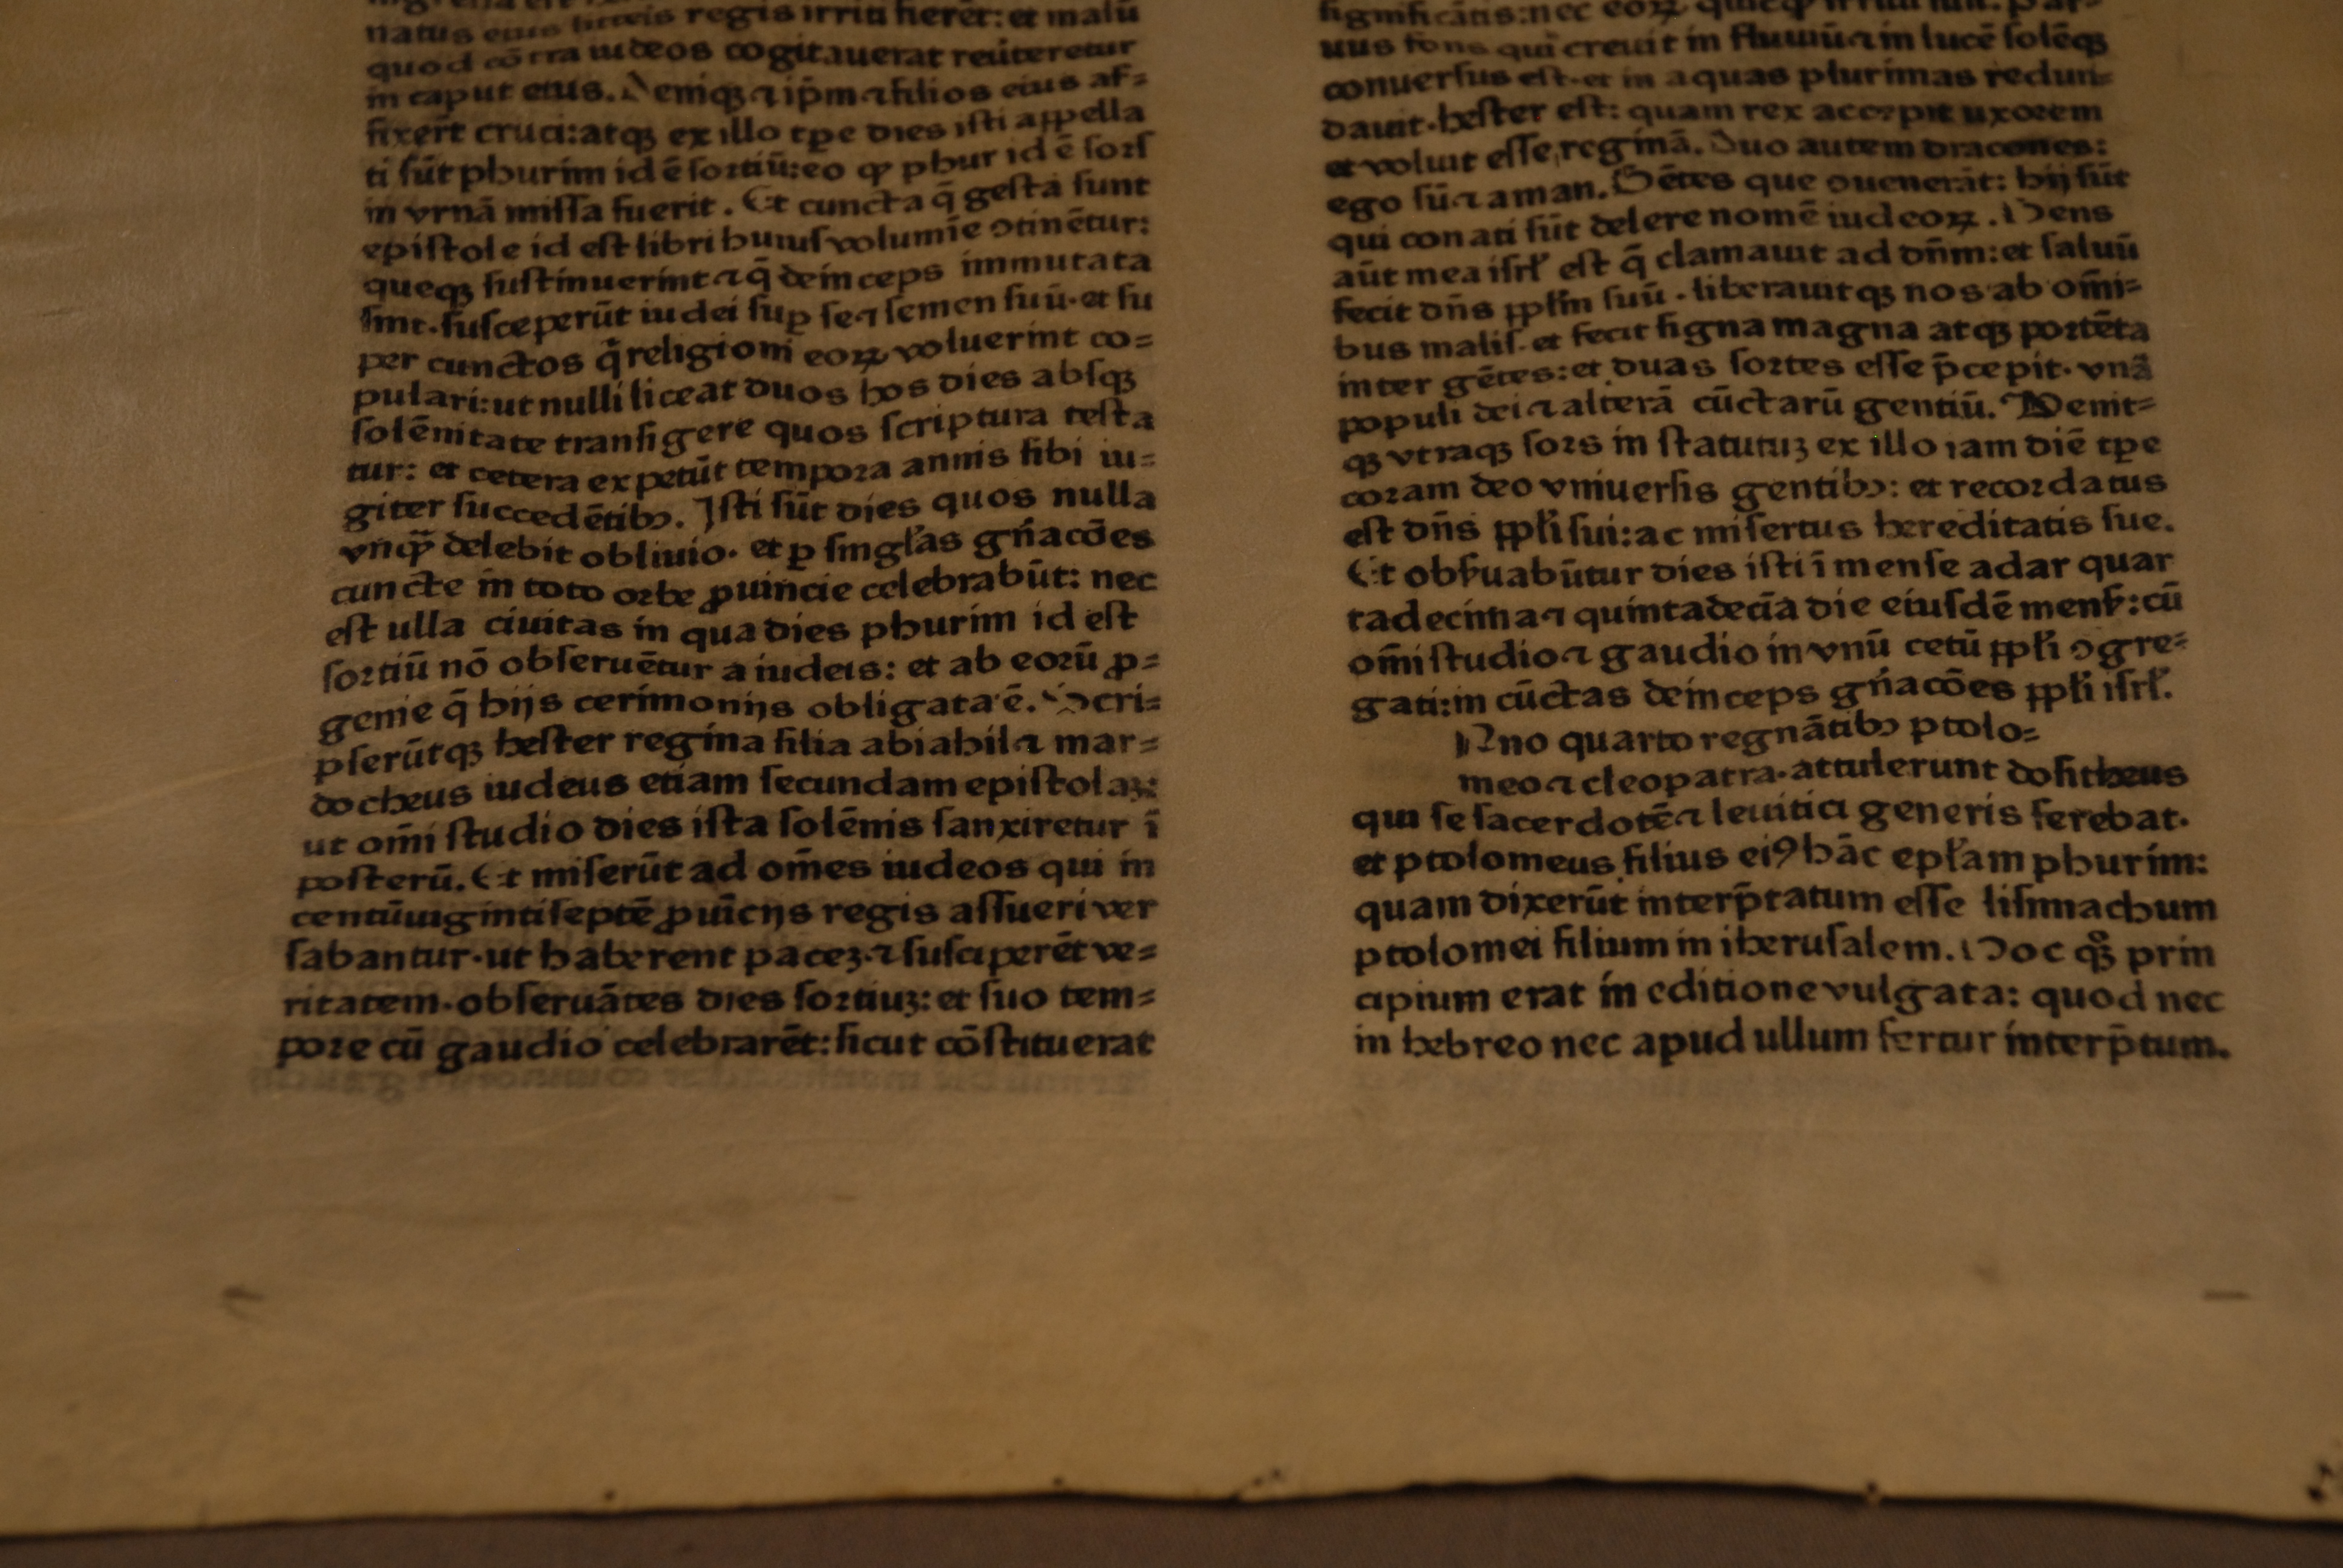 natus eius litteris regis irriti fierēt: et malū
quod cōtra iudeos cogitauerat reuteretur
in caput eius. Deniqꝫ ⁊ ip̄m ⁊ filios eius af⸗
fixer̄t cruci: atqꝫ ex illo tp̱e dies isti appella
ti sūt phurim id ē sortiū: eo ꝙ phur id ē sors
in vrnā missa fuerit. Et cuncta q̄ gesta sunt
epistole id est libri huius volumīe ↄtinētur:
queqꝫ sustinuerint ⁊ q̄ deinceps immutata
sint. susceperūt iudei suꝑ se ⁊ semen suū. et su
per cunctos q̇ religioni eoꝝ voluerint co⸗
pulari: ut nulli liceat duos hos dies absqꝫ
solēnitate transigere quos scriptura testa
tur: et cetera expetūt tempora annis sibi iu⸗
giter succedētibꝫ. Isti sūt dies quos nulla
vnqꝫ̄ delebit obliuio. et ꝑ singl'as gn̄acōes
cuncte in toto orbe ꝓuincie celebrabūt: nec
est ulla ciuitas in qua dies phurim id est
sortiū nō obseruētur a iudeis: et ab eorū ꝓ⸗
genie q̄ hijs cerimonijs obligata ē. Scri⸗
pserūtqꝫ hester regina filia abiahil ⁊ mar⸗
docheus iudeus etiam secundam epistolaꝫ:
ut om̄i studio dies ista solēnis sanxiretur ī
posterū. Et miserūt ad om̄es iudeos qui in
centūuigintiseptē ꝓuīcijs regis assueri ver
sabantur. ut haberent paceꝫ. ⁊ susciperēt ve⸗
ritatem. obseruātes dies sortiuꝫ: et suo tem⸗
pore cū gaudio celebrarēt: sicut cōstituerat
significātis: nec eoꝝ
uus fons qui creuit in fluuiū ⁊ in lucē solēqꝫ
conuersus est. et in aquas plurimas redun⸗
dauit. hester est: quam rex accepit uxorem
et voluit esse reginā. Duo autem dracones:
ego sū ⁊ aman. Gētes que ↄuenerāt: hij sūt
qui conati sūt delere nomē iudeoꝝ. Gens
aūt mea isrl' est q̄ clamauit ad dn̄m: et saluū
fecit dn̄s ppl'm suū. liberauitqꝫ nos ab om̄i⸗
bus malis. et fecit signa magna atqꝫ portēta
inter gētes: et duas sortes esse p̄cepit. vnā
populi dei ⁊ alterā cūctarū gentiū. Venit⸗
qꝫ vtraqꝫ sors in statutuꝫ ex illo iam diē tp̱e
coram deo vniuersis gentibꝫ: et recordatus
est dn̄s ppl'i sui: ac misertus hereditatis sue.
Et obs'uabūtur dies isti ī mense adar quar
tadecima ⁊ quintadecīa die eiusdē mens': cū
om̄i studio ⁊ gaudio in vnū cetū ppl'i ↄgre⸗
gati: in cūctas deinceps gn̄acōes ppl'i isrl'.
Anno quarto regnātibꝫ ptolo⸗
meo ⁊ cleopatra. attulerunt dositheus
qui se sacerdotē ⁊ leuitici generis ferebat.
et ptolomeus filius eiꝰ hāc epl'am phurim:
quam dixerūt interp̄tatum esse lisimachum
ptolomei filium in iherusalem. Hoc qꝫ prin
cipium erat in editione vulgata: quod nec
in hebreo nec apud ullum fertur interp̄tum.